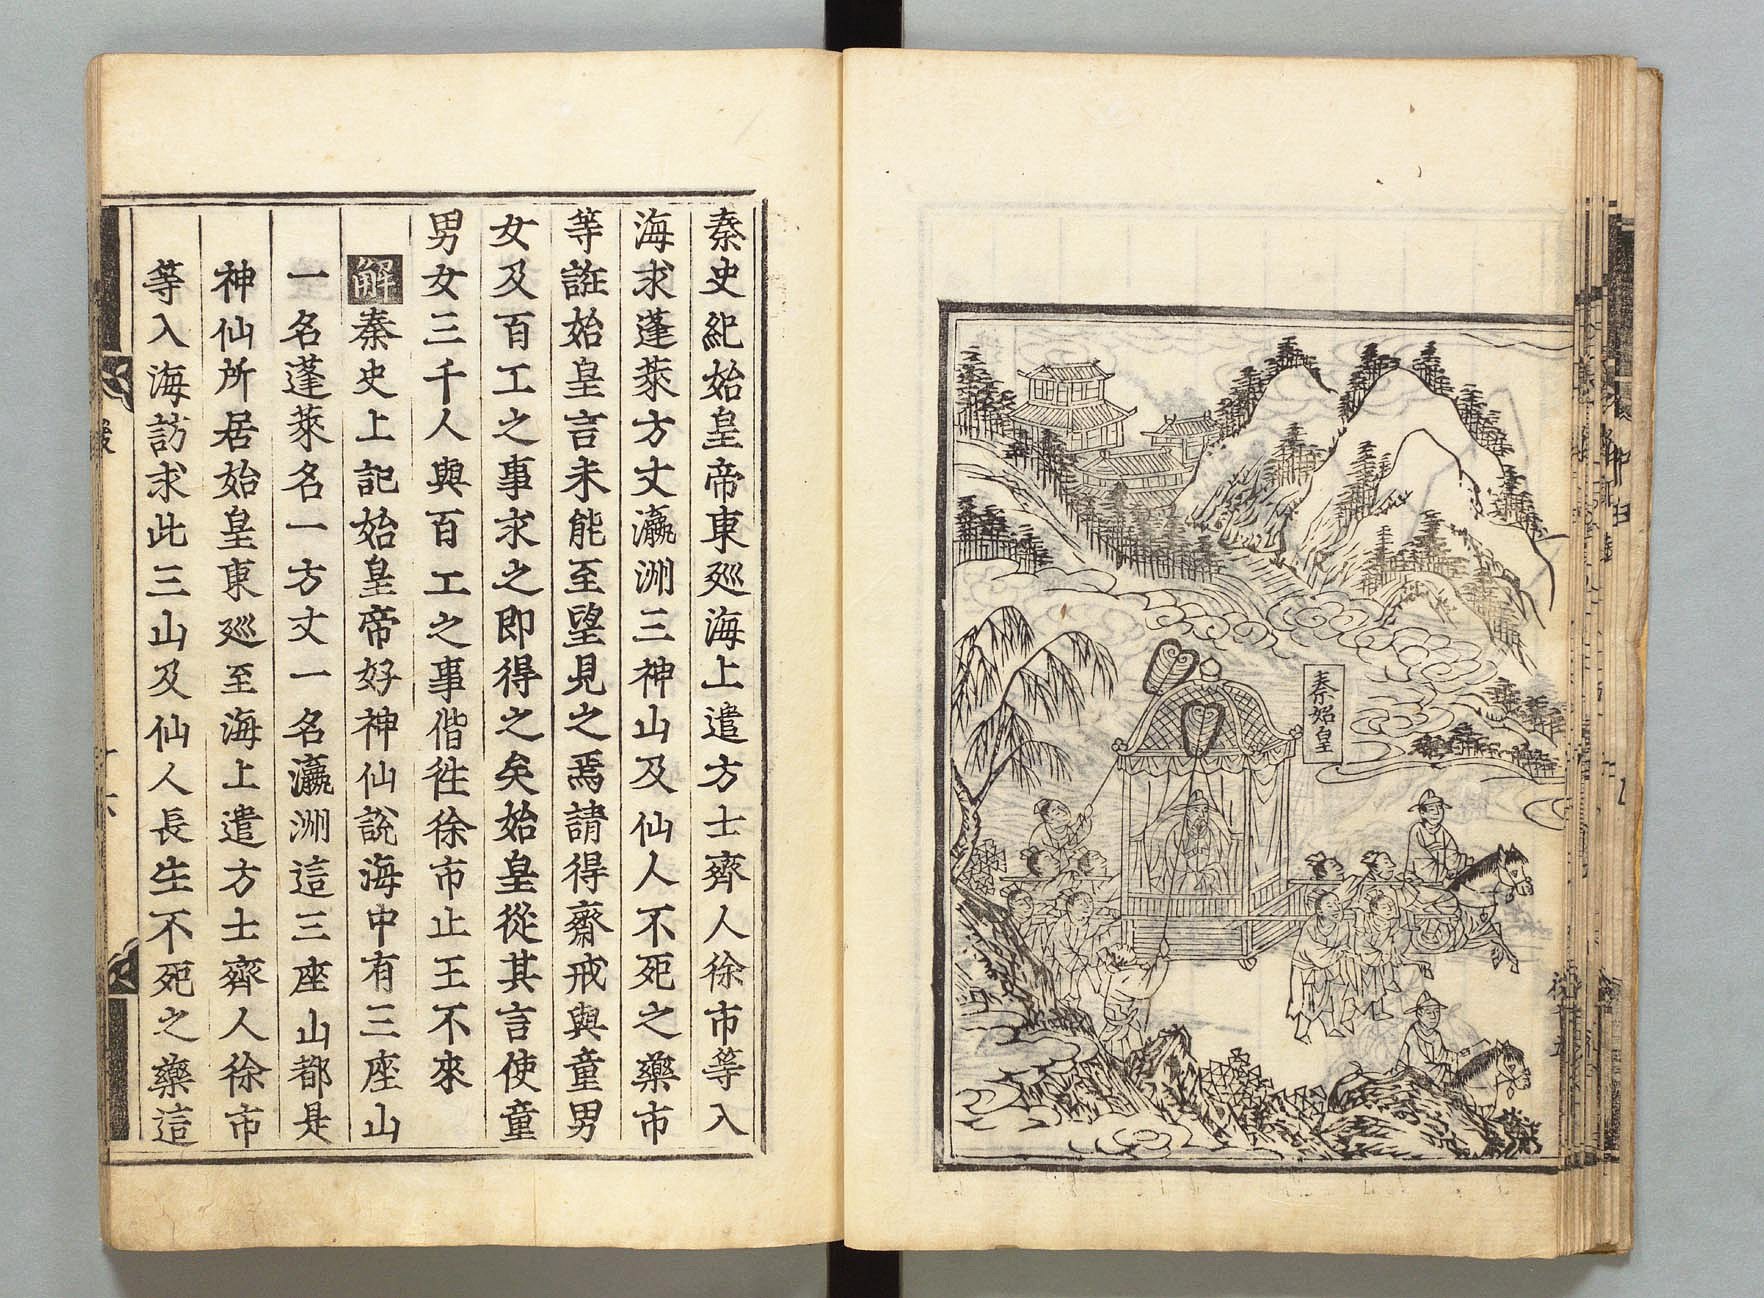 秦始皇
秦史紀始皇帝東廵海上遣方士齊人徐市等入
海求蓬萊方丈瀛洲三神山及仙人不死之藥市
等誑始皇言未能至望見之焉請得齋戒與童男
女及百工之事求之即得之矣始皇從其言使童
男女三千人與百工之事偕徃徐市止王不來
解秦史上記始皇帝好神仙說海中有三座山
一名蓬萊名一方丈一名瀛洲這三座山都是
神仙所居始皇東廵至海上遣方士齊人徐市
等入海訪求此三山及仙人長生不死之藥這